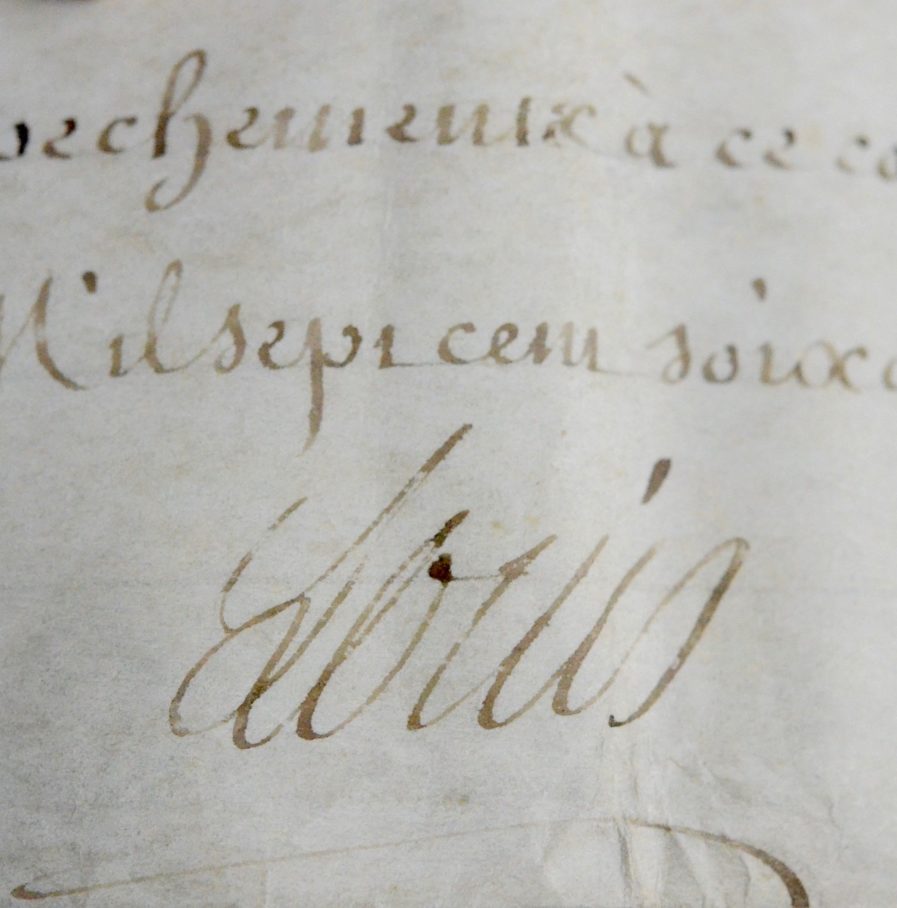 pechements à ce co
Mil sept cent soixa
Louis